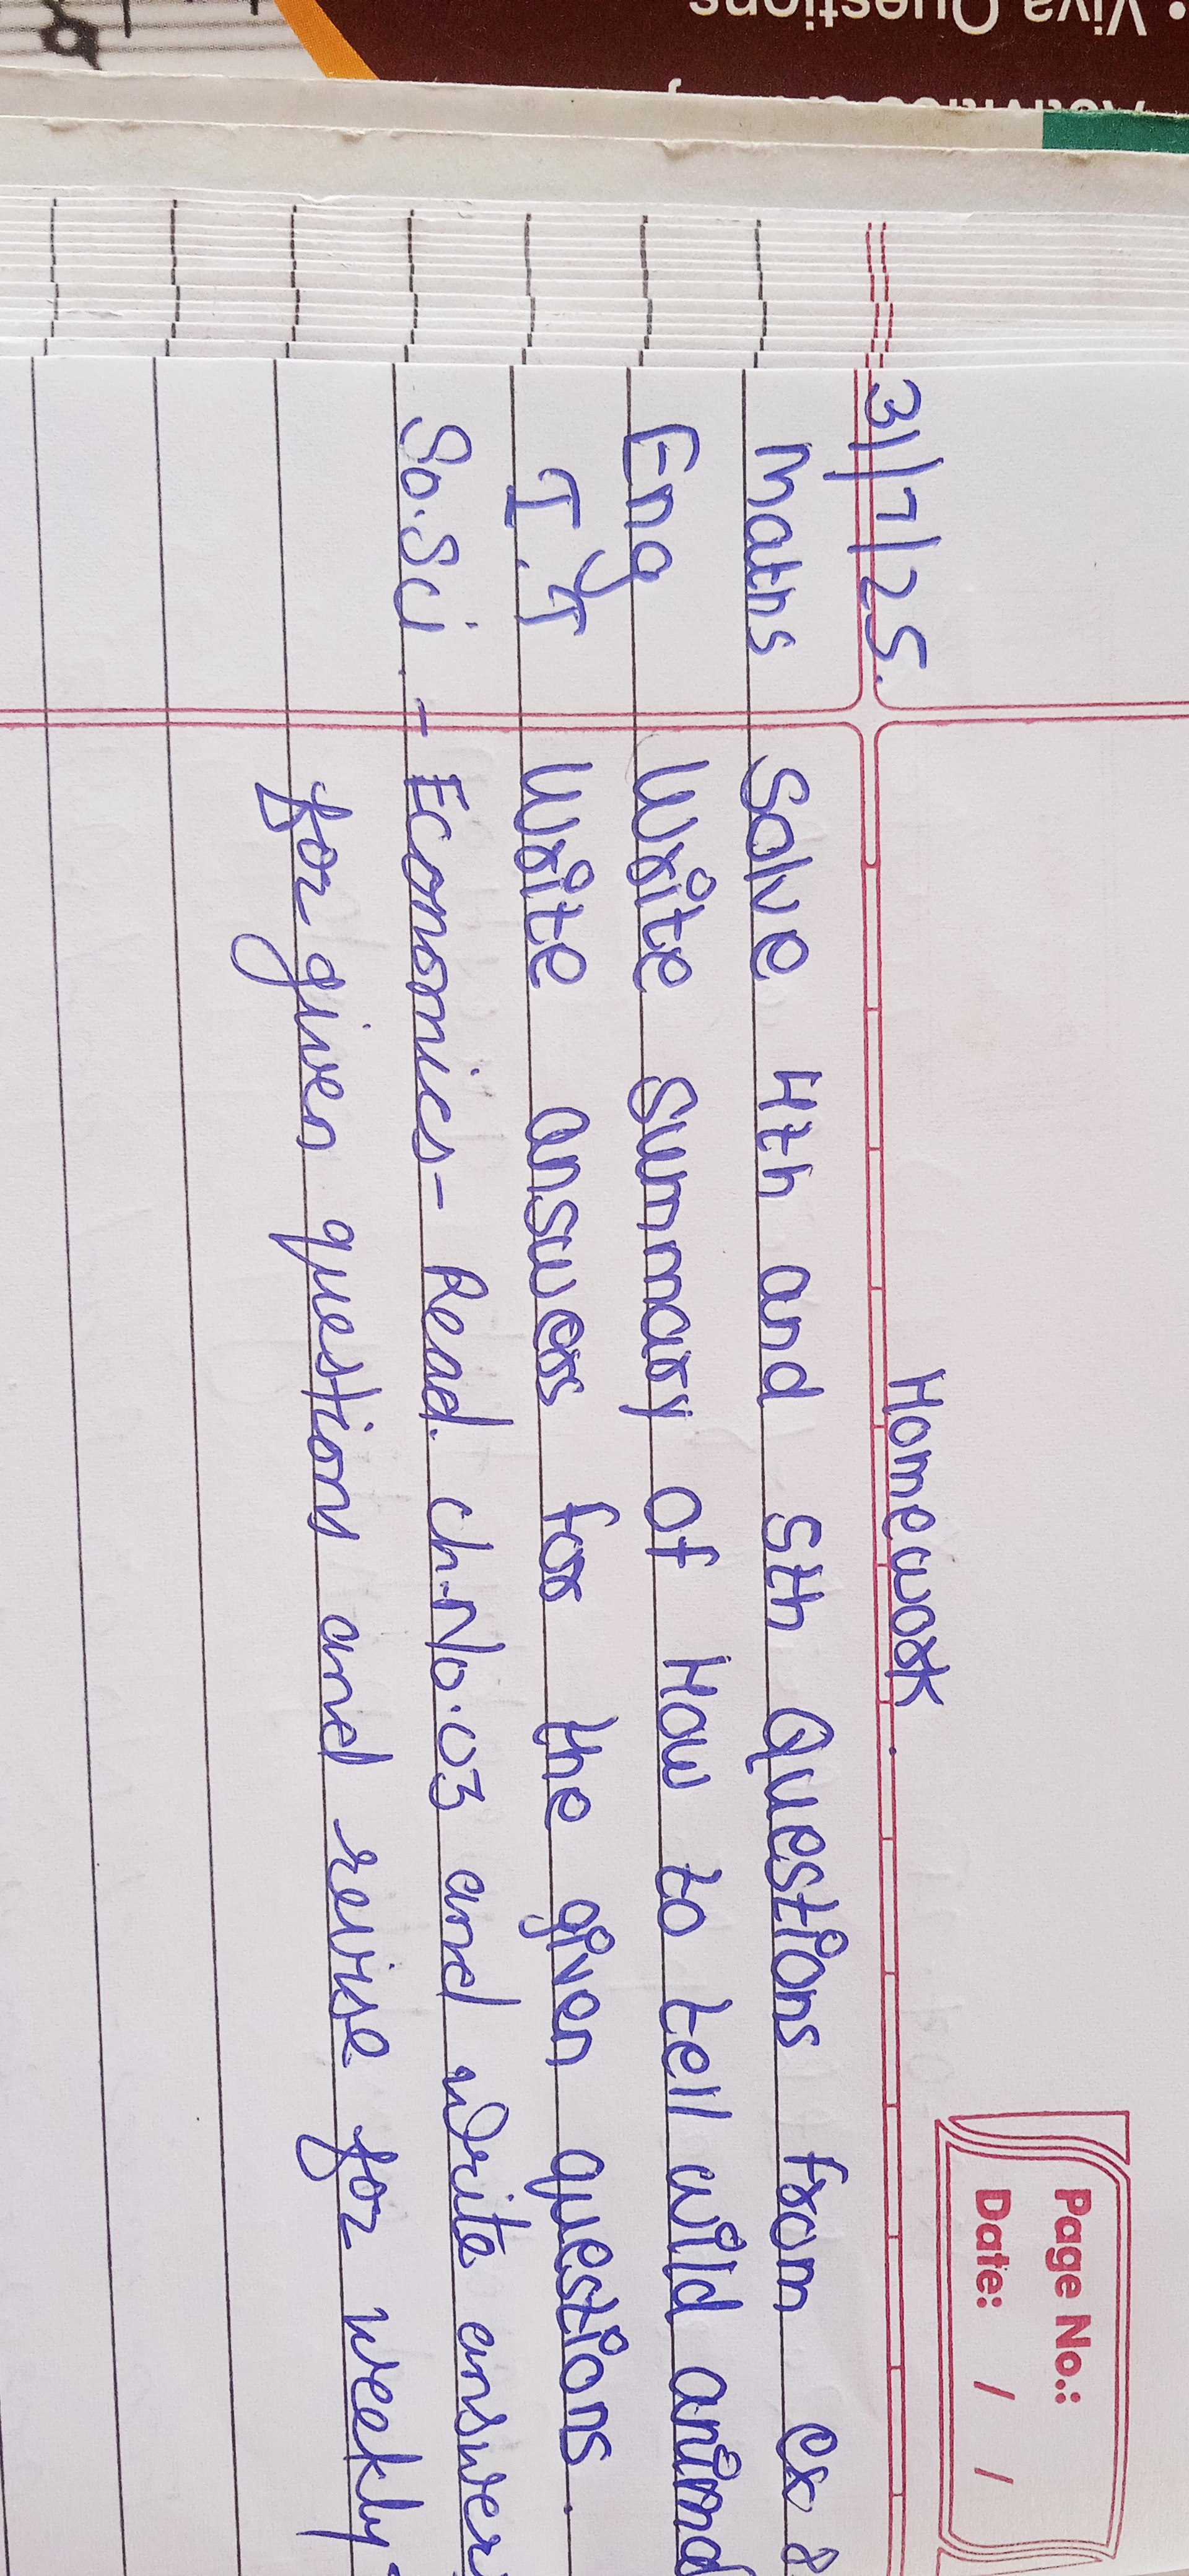 • Viva Questions
Page No.:
Date: / /
Homework.
31/7/25.
Maths Solve 4th and 5th Questions from ex
Eng Write Summary of How to tell wild
I.T Write answers for the given questions.
So.Sci. - Economics- Read. ch.No.03 and write answer
for given questions and revise for weekly-